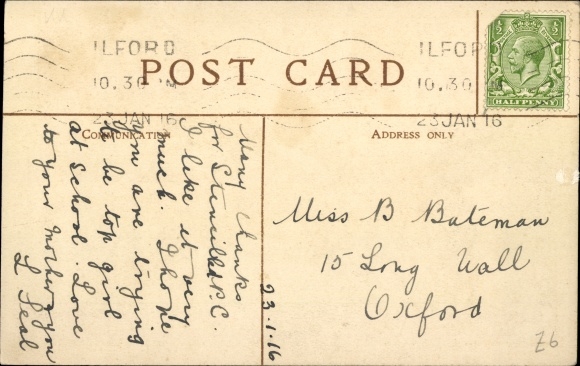 ILFORD
10.30 AM
23 JAN 16
ILFOR
10.30
23 JAN 16
½ ½
HALFPENNY
POST CARD
COMMUNICATION
ADDRESS ONLY
Many thanks
for Stencilled P.C.
I like it very
much. I hope
you are trying
to be top girl
at School. Love
to your Mother & you
L Seal
23.1.16
Miss B Bateman
15 Long Wall
Oxford
Z6